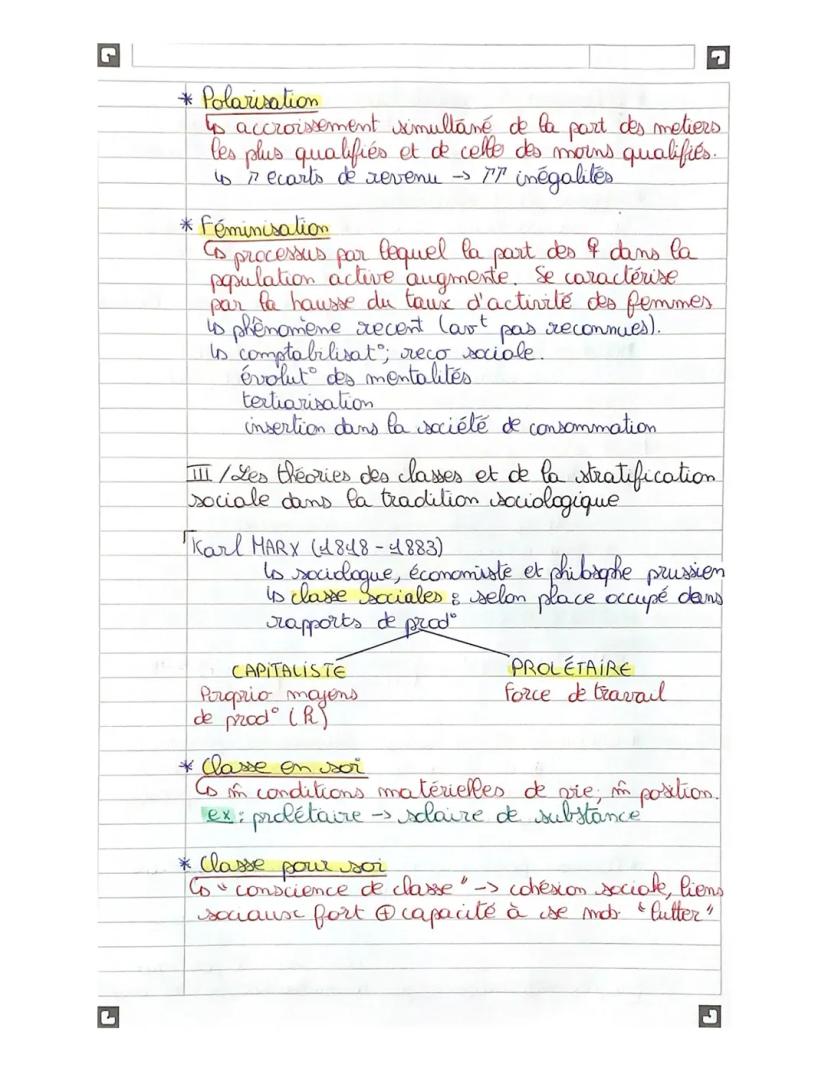 * Polarisation
↳ accroissement simultané de la part des metiers
les plus qualifiés et de celle des moins qualifiés.
↳ ↗ ecarts de revenu → ↗↗ inégalités
* Féminisation
↳ processus par lequel la part des ♀ dans la
population active augmente. Se caractérise
par la hausse du taux d'activité des femmes
↳ phénomène recent (avt pas reconnues).
↳ comptabilisat°; reco sociale.
évolut° des mentalités
tertiarisation
insertion dans la société de consommation
III / Les théories des classes et de la stratification
sociale dans la tradition sociologique
Karl MARX (1818-1883)
↳ sociologue, économiste et philosphe prussien
↳ classe sociales : selon place occupé dans
rapports de prod°
CAPITALISTE PROLÉTAIRE
Porprio moyens Force de travail
de prod° (K)
* Classe en soi
↳ m̂ conditions matérielles de vie; m̂ position.
ex : prolétaire → salaire de substance
* Classe pour soi
↳ "conscience de classe" → cohésion sociale, liens
sociaux fort ⊕ capacité à se mob. "lutter"